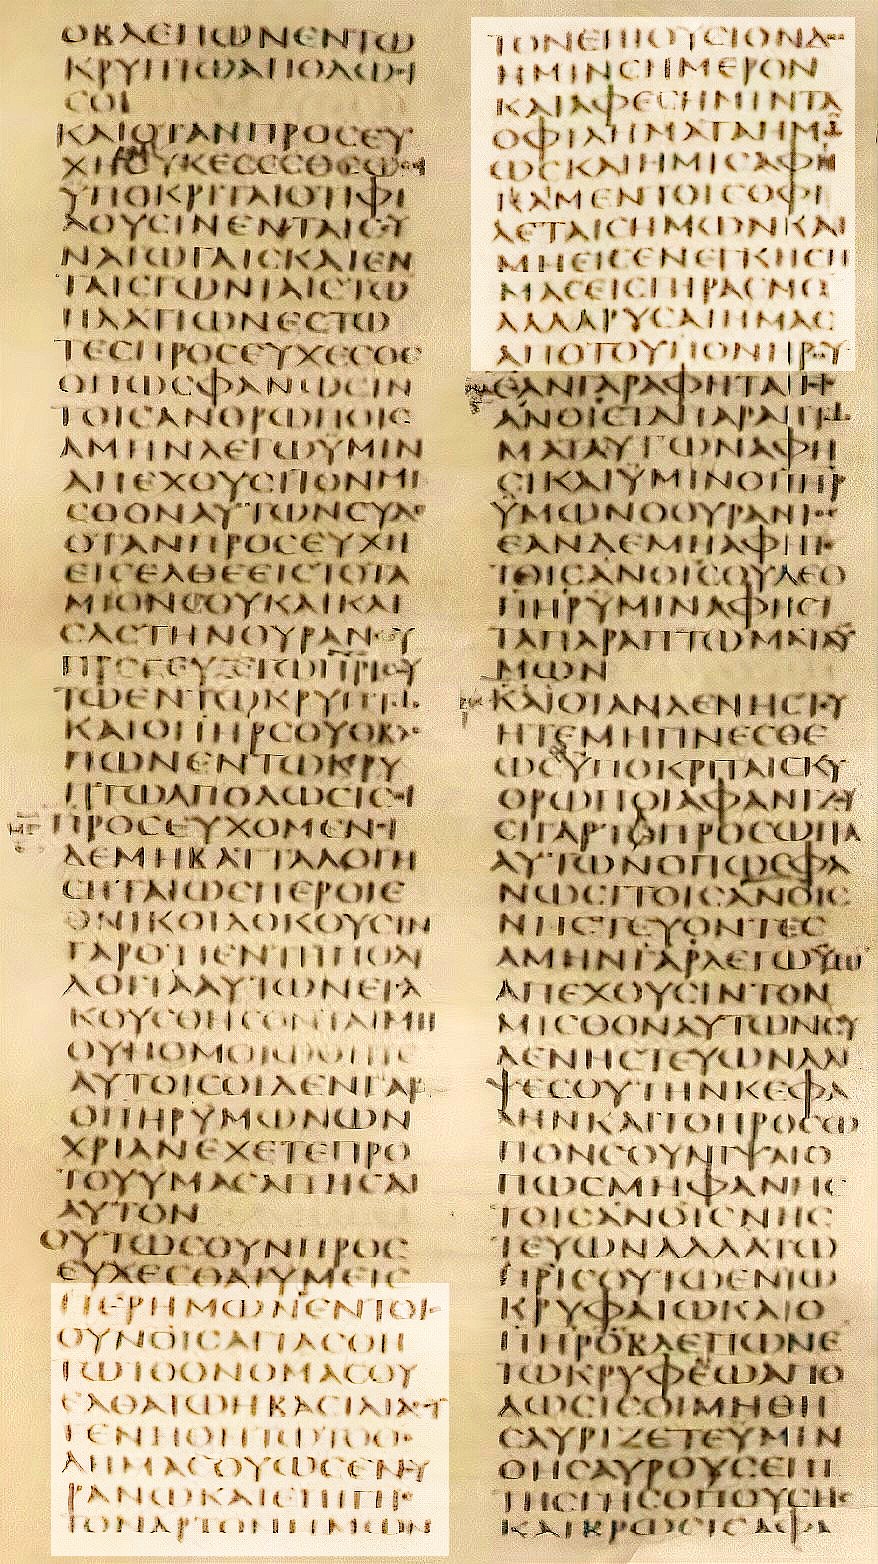 ΟΒΛΕΠΩΝΕΝΤΩ
ΚΡΥΠΤΩΑΠΟΔΩϹΙ
ϹΟΙ
ΚΑΙΟΤΑΝΠΡΟϹΕΥ
ΥΠΟΚΡΙΤΑΙΟΤΙΦΙ
ΛΟΥϹΙΝΕΝΤΑΙϹϹΥ
ΝΑΓΩΓΑΙϹΚΑΙΕΝ
ΤΑΙϹΓΩΝΙΑΙϹΤΩ
ΠΛΑΤΙΩΝΕϹΤΩ
ΤΕϹΠΡΟϹΕΥΧΕϹΘΕ
ΟΠΩϹΦΑΝΩϹΙΝ
ΤΟΙϹΑΝΘΡΩΠΟΙϹ
ΑΜΗΝΛΕΓΩΫΜΙΝ
ΑΠΕΧΟΥϹΙΤΟΝΜΙ
ϹΘΟΝΑΥΤΩΝϹΥΔΕ
ΟΤΑΝΠΡΟϹΕΥΧΗ
ΕΙϹΕΛΘΕΕΙϹΤΟΤΑ
ΜΙΟΝϹΟΥΚΑΙΚΛΙ
ϹΑϹΤΗΝΘΥΡΑΝϹΟΥ
ΠΡΟϹΕΥΞΕΤΩΠΡΙϹΟΥ
ΤΩΕΝΤΩΚΡΥΠΤΩ
ΚΑΙΟΠΗΡϹΟΥΟΒΛΕ
ΠΩΝΕΝΤΩΚΡΥ
ΠΤΩΑΠΟΔΩϹΙϹΟΙ
ΠΡΟϹΕΥΧΟΜΕΝΟΙ
ΔΕΜΗΒΑΤΤΑΛΟΓΗ
ϹΗΤΑΙΩϹΠΕΡΟΙΕ
ΘΝΙΚΟΙΔΟΚΟΥϹΙΝ
ΓΑΡΟΤΙΕΝΤΗΠΟΛΥ
ΛΟΓΙΑΑΥΤΩΝΕΙϹΑ
ΚΟΥϹΘΗϹΟΝΤΑΙΜΗ
ΟΥΝΟΜΟΙΩΘΗΤΕ
ΑΥΤΟΙϹΟΙΔΕΝΓΑΡ
ΟΠΗΡΥΜΩΝΩΝ
ΧΡΙΑΝΕΧΕΤΕΠΡΟ
ΤΟΥΥΜΑϹΑΙΤΗϹΑΙ
ΑΥΤΟΝ
ΟΥΤΩϹΟΥΝΠΡΟϹ
ΕΥΧΕϹΘΑΙΥΜΕΙϹ
ΠΕΡΗΜΩΝΕΝΤΟΙϹ
ΟΥΝΟΙϹΑΓΙΑϹΘΗ
ΤΩΤΟΟΝΟΜΑϹΟΥ
ΕΛΘΑΤΩΗΒΑϹΙΛΙΑϹΟΥ
ΓΕΝΗΘΗΤΩΤΟΘΕ
ΛΗΜΑϹΟΥΩϹΕΝΟΥ
ΡΑΝΩΚΑΙΕΠΙΓΗϹ
ΤΟΝΑΡΤΟΝΗΜΩΝ
ΤΟΝΕΠΙΟΥϹΙΟΝΔΟϹ
ΗΜΙΝϹΗΜΕΡΟΝ
ΚΑΙΑΦΕϹΗΜΙΝΤΑ
ΟΦΙΛΗΜΑΤΑΗΜΩ
ΩϹΚΑΙΗΜΙϹΑΦΗ
ΚΑΜΕΝΤΟΙϹΟΦΙ
ΛΕΤΑΙϹΗΜΩΝΚΑΙ
ΜΗΕΙϹΕΝΕΓΚΗϹΗ
ΜΑϹΕΙϹΠΙΡΑϹΜΟ
ΑΛΛΑΡΥϹΑΙΗΜΑϹ
ΑΠΟΤΟΥΠΟΝΗΡΟΥ
ΕΑΝΓΑΡΑΦΗΤΑΙΤΟΙϹ
ΑΝΟΙϹΤΑΠΑΡΑΠΤΩ
ΜΑΤΑΑΥΤΩΝΑΦΗ
ϹΙΚΑΙΫΜΙΝΟΠΗΡ
ΫΜΩΝΟΟΥΡΑΝΙΟϹ
ΕΑΝΔΕΜΗΑΦΗΤΕ
ΤΟΙϹΑΝΟΙϹΟΥΔΕΟ
ΠΗΡΫΜΙΝΑΦΗϹΙ
ΤΑΠΑΡΑΠΤΩΜΑΤΑΫ
ΜΩΝ
ΚΑΙΟΤΑΝΔΕΝΗϹΤΕΥ
ΗΤΕΜΗΓΙΝΕϹΘΕ
ΩϹΫΠΟΚΡΙΤΑΙϹΚΥ
ΘΡΩΠΟΙΑΦΑΝΙΖΟΥ
ϹΙΓΑΡΤΟΠΡΟϹΩΠΑ
ΑΥΤΩΝΟΠΩϹΦΑ
ΝΩϹΙΤΟΙϹΑΝΟΙϹ
ΝΗϹΤΕΥΟΝΤΕϹ
ΑΜΗΝΓΑΡΛΕΓΩΫΜΙ
ΑΠΕΧΟΥϹΙΝΤΟΝ
ΜΙϹΘΟΝΑΥΤΩΝϹΥ
ΔΕΝΗϹΤΕΥΩΝΑΛΙ
ΨΕϹΟΥΤΗΝΚΕΦΑ
ΛΗΝΚΑΙΤΟΠΡΟϹΩ
ΠΟΝϹΟΥΝΙΨΑΙΟ
ΠΩϹΜΗΦΑΝΗϹ
ΤΟΙϹΑΝΟΙϹΝΗϹ
ΤΕΥΩΝΑΛΛΑΤΩ
ΠΡΙϹΟΥΤΩΕΝΤΩ
ΚΡΥΦΑΙΩΚΑΙΟ
ΠΗΡΟΒΛΕΠΩΝΕ
ΤΩΚΡΥΦΕΩΑΠΟ
ΔΩϹΙϹΟΙΜΗΘΗ
ϹΑΥΡΙΖΕΤΕΥΜΙΝ
ΘΗϹΑΥΡΟΥϹΕΠΙ
ΤΗϹΓΗϹΟΠΟΥϹΗϹ
ΚΑΙΒΡΩϹΙϹΑΦΑ